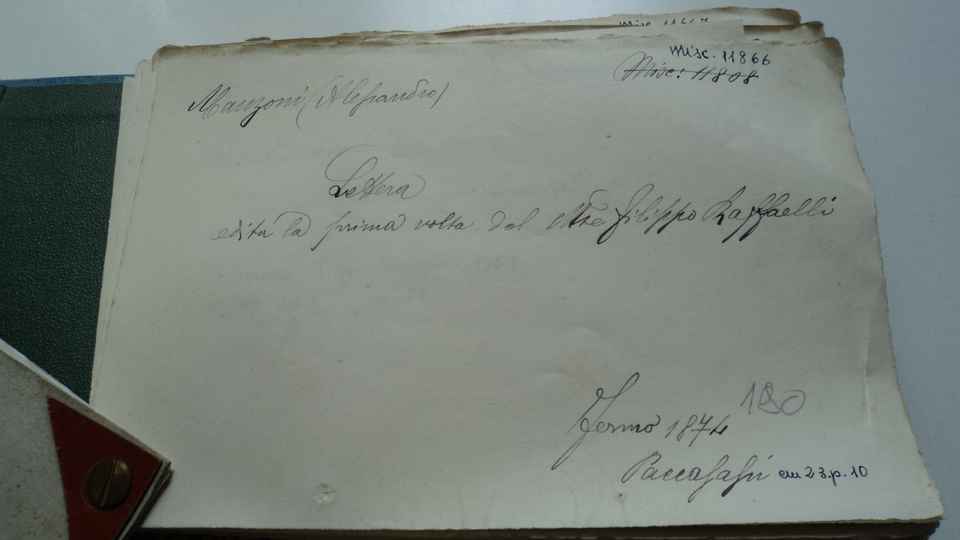 Misc. 11866
Misc: 11808
Manzoni (Alessandro)
Lettera
edita la prima volta dal Mse Filippo Raffaelli
Fermo 1874
180
Paccasassi cm 23. p. 10